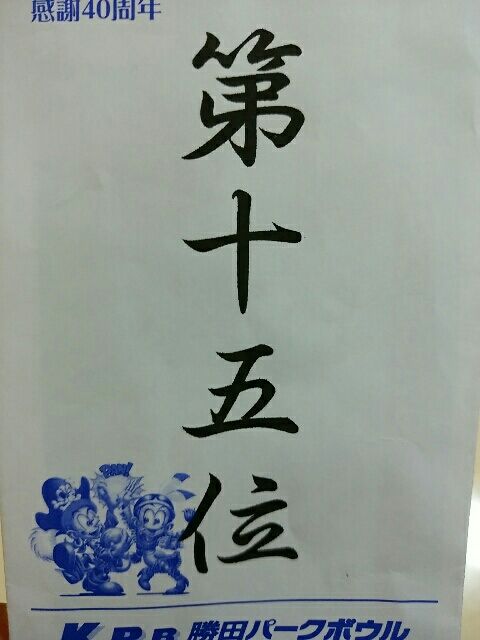 感謝40周年
第十五位
BAM!
KPB 勝田パークボウル